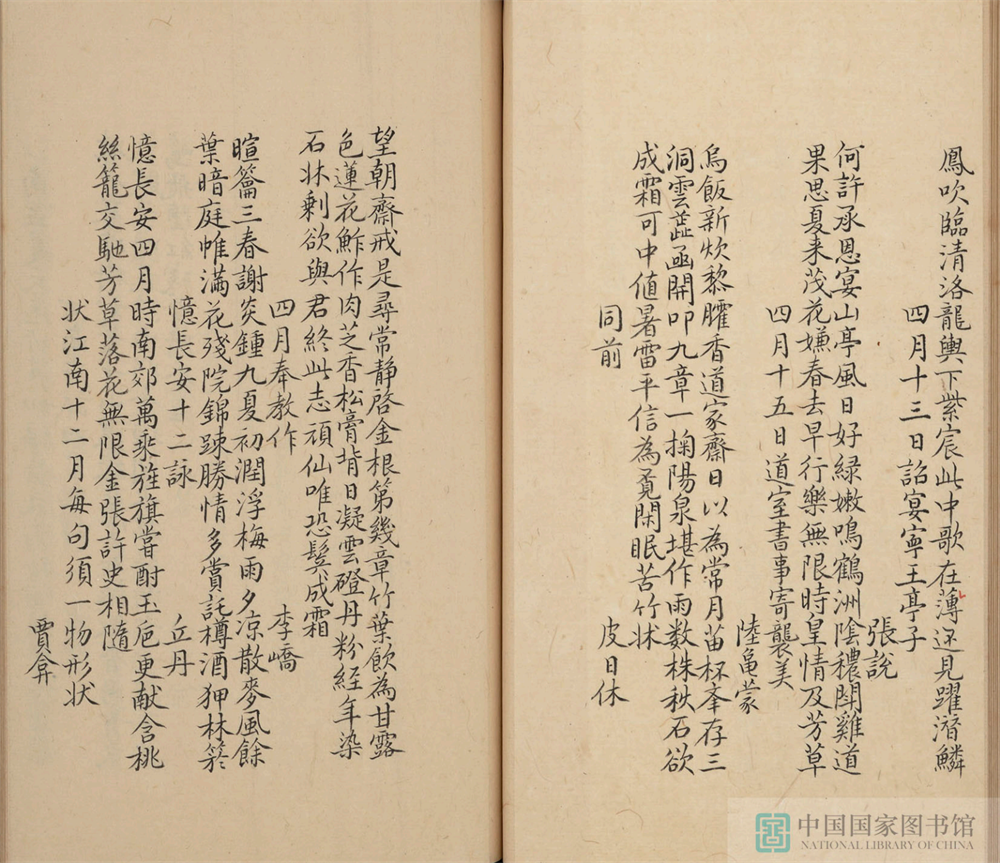 鳳吹臨清洛龍輿下紫宸此中歌在薄还見躍潛鱗
四月十三日詔宴寧王亭子
張說
何許承恩宴山亭風日好緑嫩鳴鶴洲陰穠閗雞道
果思夏来茂花嫌春去早行樂無限時皇情及芳草
四月十五日道室書事寄襲美
陸亀蒙
烏飯新炊黎臛香道家齋日以為常月苗杯举存三
洞雲蕋函開叩九章一掬陽泉堪作雨数株秋石欲
成霜可中値暑雷平信為覔閑眠苦竹牀
同前
皮日休
望朝齋戒是尋常静啓金根第幾章竹葉飲為甘露
色蓮花鮓作肉芝香松膏背日凝雲磴丹粉経年染
石牀剩欲與君終此志頑仙唯恐鬂成霜
四月奉教作
李嶠
暄籥三春謝炎鍾九夏初潤浮梅雨夕凉散麥風餘
葉暗庭帷滿花殘院錦踈勝情多賞託樽酒狎林箊
憶長安十二詠
丘丹
憶長安四月時南郊萬乘旌旗嘗酎玉巵更献含桃
絲籠交馳芳草落花無限金張許史相隨
状江南十二月每句須一物形状
賈弇
中国国家图书馆
NATIONAL LIBRARY OF CHINA